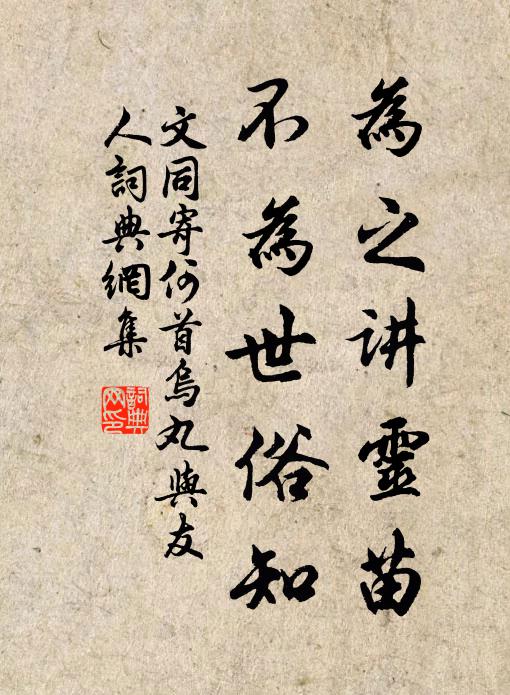 為之讲靈苗
不為世俗知
文同寄何首烏丸與友
人詞典網集
詞典
网印